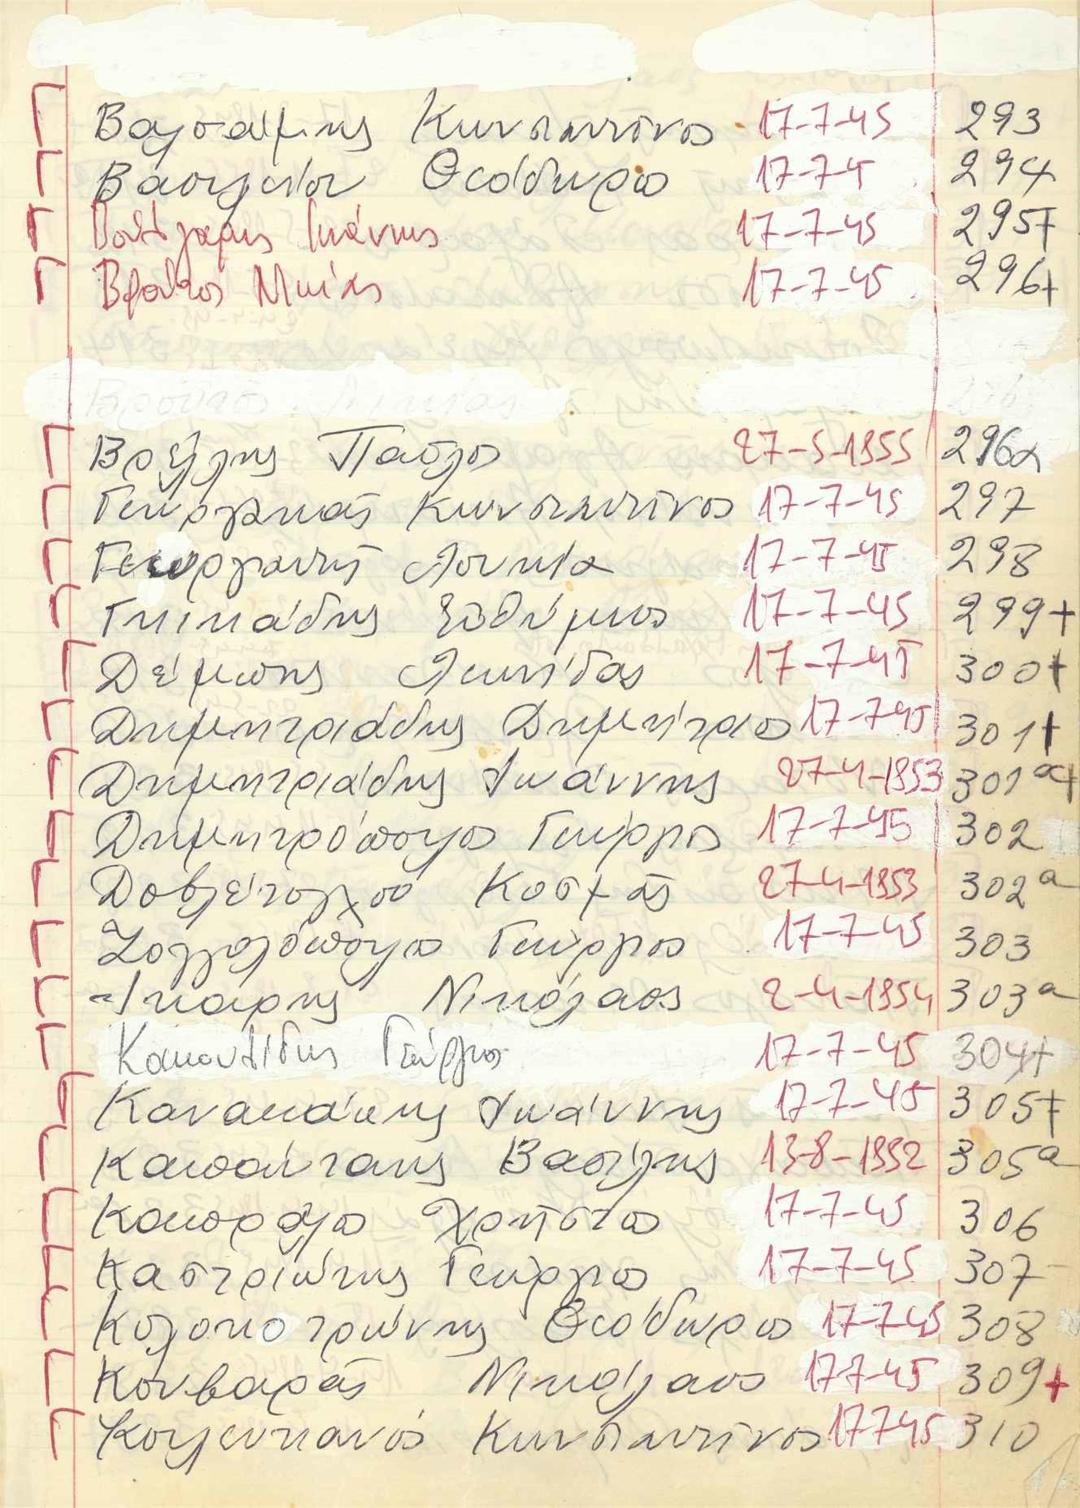 Βαλσάμης Κωνσταντίνος 17-7-45 293
Βασιλείου Θεόδωρος 17-7-45 294
Βούλγαρης Ιωάννης 17-7-45 295+
Βρούτος Μηνάς 17-7-45 296+
Βρέλλης Παύλος 27-5-1955 296α
Γεωργακάς Κωνσταντίνος 17-7-45 297
Γεωργαντής Λουκία 17-7-45 298
Γκικάδης Ευθύμιος 17-7-45 299+
Δέμωσης Λεωνίδας 17-7-45 300+
Δημητριάδης Δημήτριος 17-7-45 301+
Δημητριάδης Ιωάννης 27-4-1953 301α+
Δημητρόπουλος Γεώργιος 17-7-45 302
Δοβλέτογλου Κοσμάς 27-4-1953 302α
Ζογγολόπουλος Γεώργιος 17-7-45 303
Ικάρης Νικόλαος 2-4-1954 303α
Κακουλίδης Γεώργιος 17-7-45 304+
Κανακάκης Ιωάννης 17-7-45 305+
Καπάνταης Βασίλης 13-8-1952 305α
Καπράλος Χρήστος 17-7-45 306
Καστριώτης Γεώργιος 17-7-45 307
Κολοκοτρώνης Θεόδωρος 17-7-45 308
Κουβαράς Νικόλαος 17-7-45 309+
Κουλευκιανός Κωνσταντίνος 17745 310